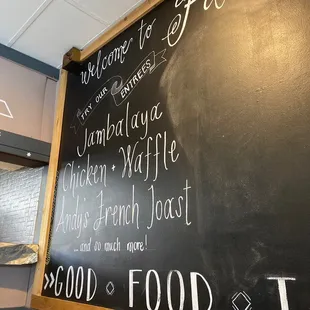 Welcome to
TRY OUR
ENTREES
Jambalaya
Chicken + Waffle
Andy's French Toast
...and so much more!
»GOOD ◇ FOOD ◇ T